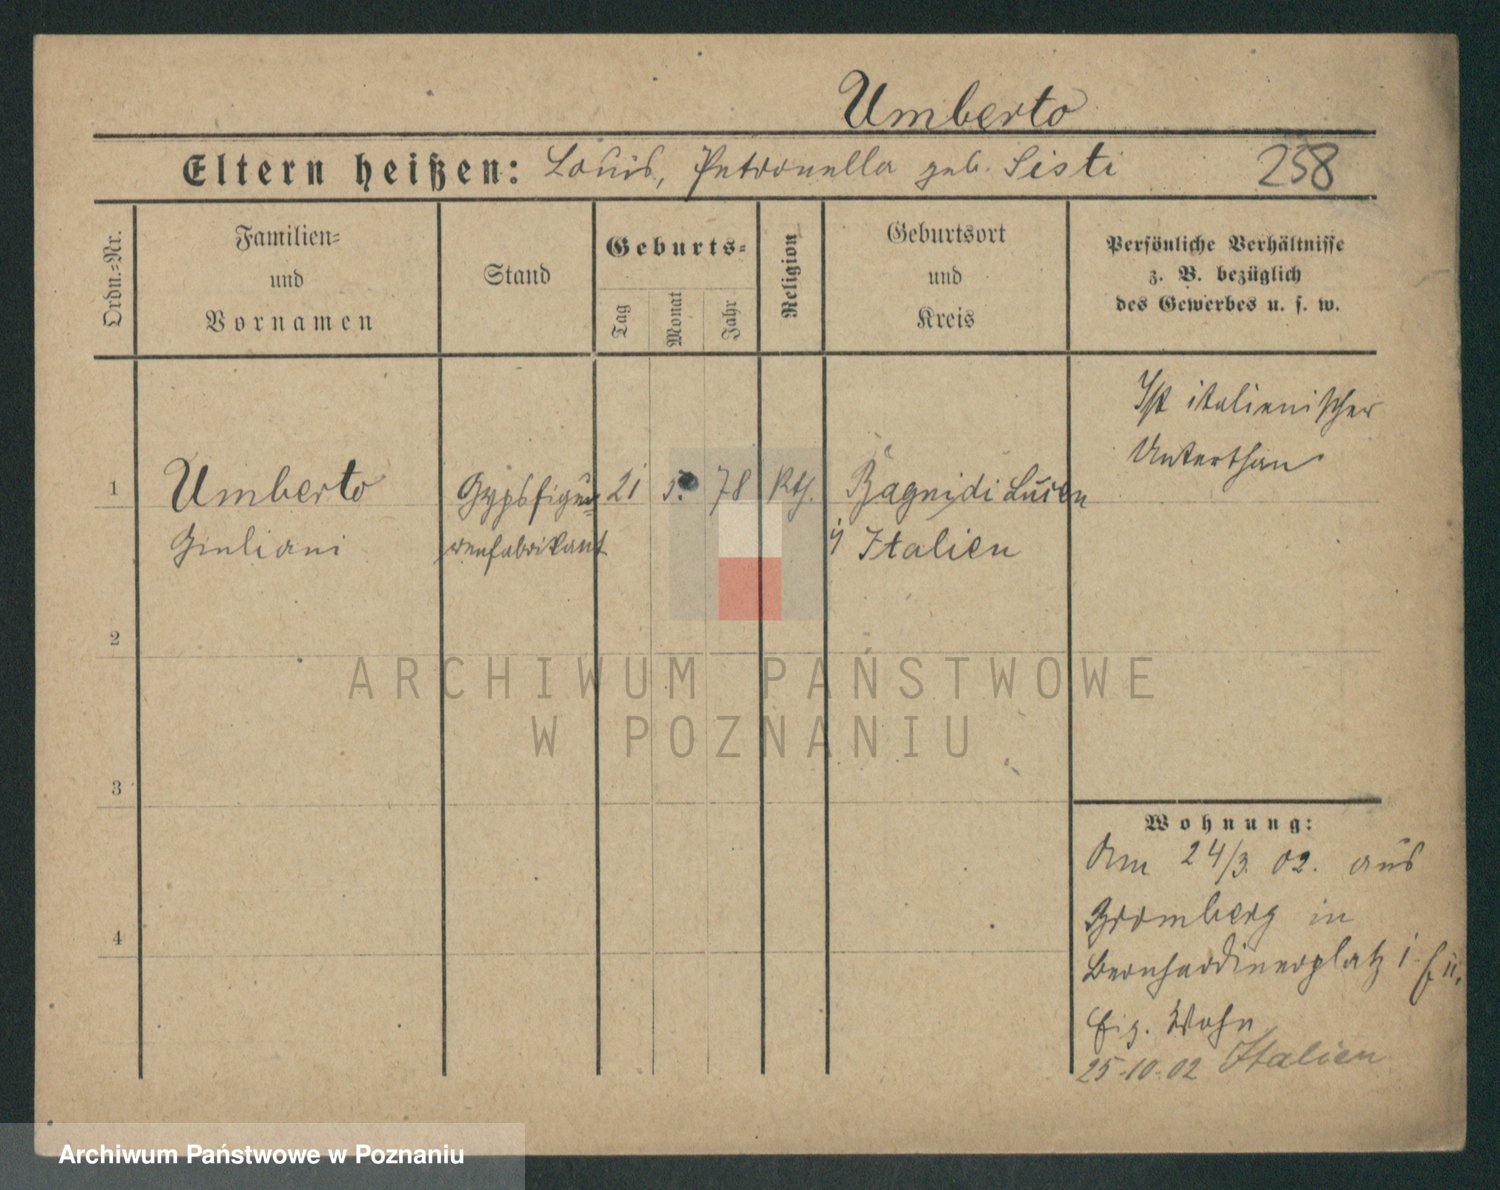 Umberto
Eltern heißen: Louis, Petronella geb. Sisti 258
Ordn.-Nr.
Familien-
und
Vornamen
Stand
Geburts-
Tag
Monat
Jahr
Religion
Geburtsort
und
Kreis
Persönliche Verhältnisse
z. B. bezüglich
des Gewerbes u. s. w.
Ist italienischer
Unterthan
1 Umberto Gypsfigu= 21 78 Kth. Bagni di
Giuliani renfabrikant Italien
2
3
4
ARCHIWUM PAŃSTWOWE
W POZNANIU
Wohnung:
Am 24/3. 02. aus
Bromberg in
Bernhardinerplatz 1
Eig. Wohn
25-10-02 Italien
Archiwum Państwowe w Poznaniu